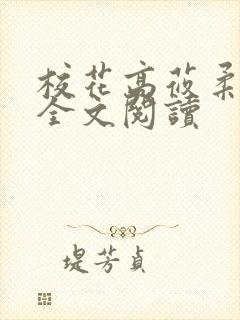 校花高莜柔
全文閱讀
堤芳貞